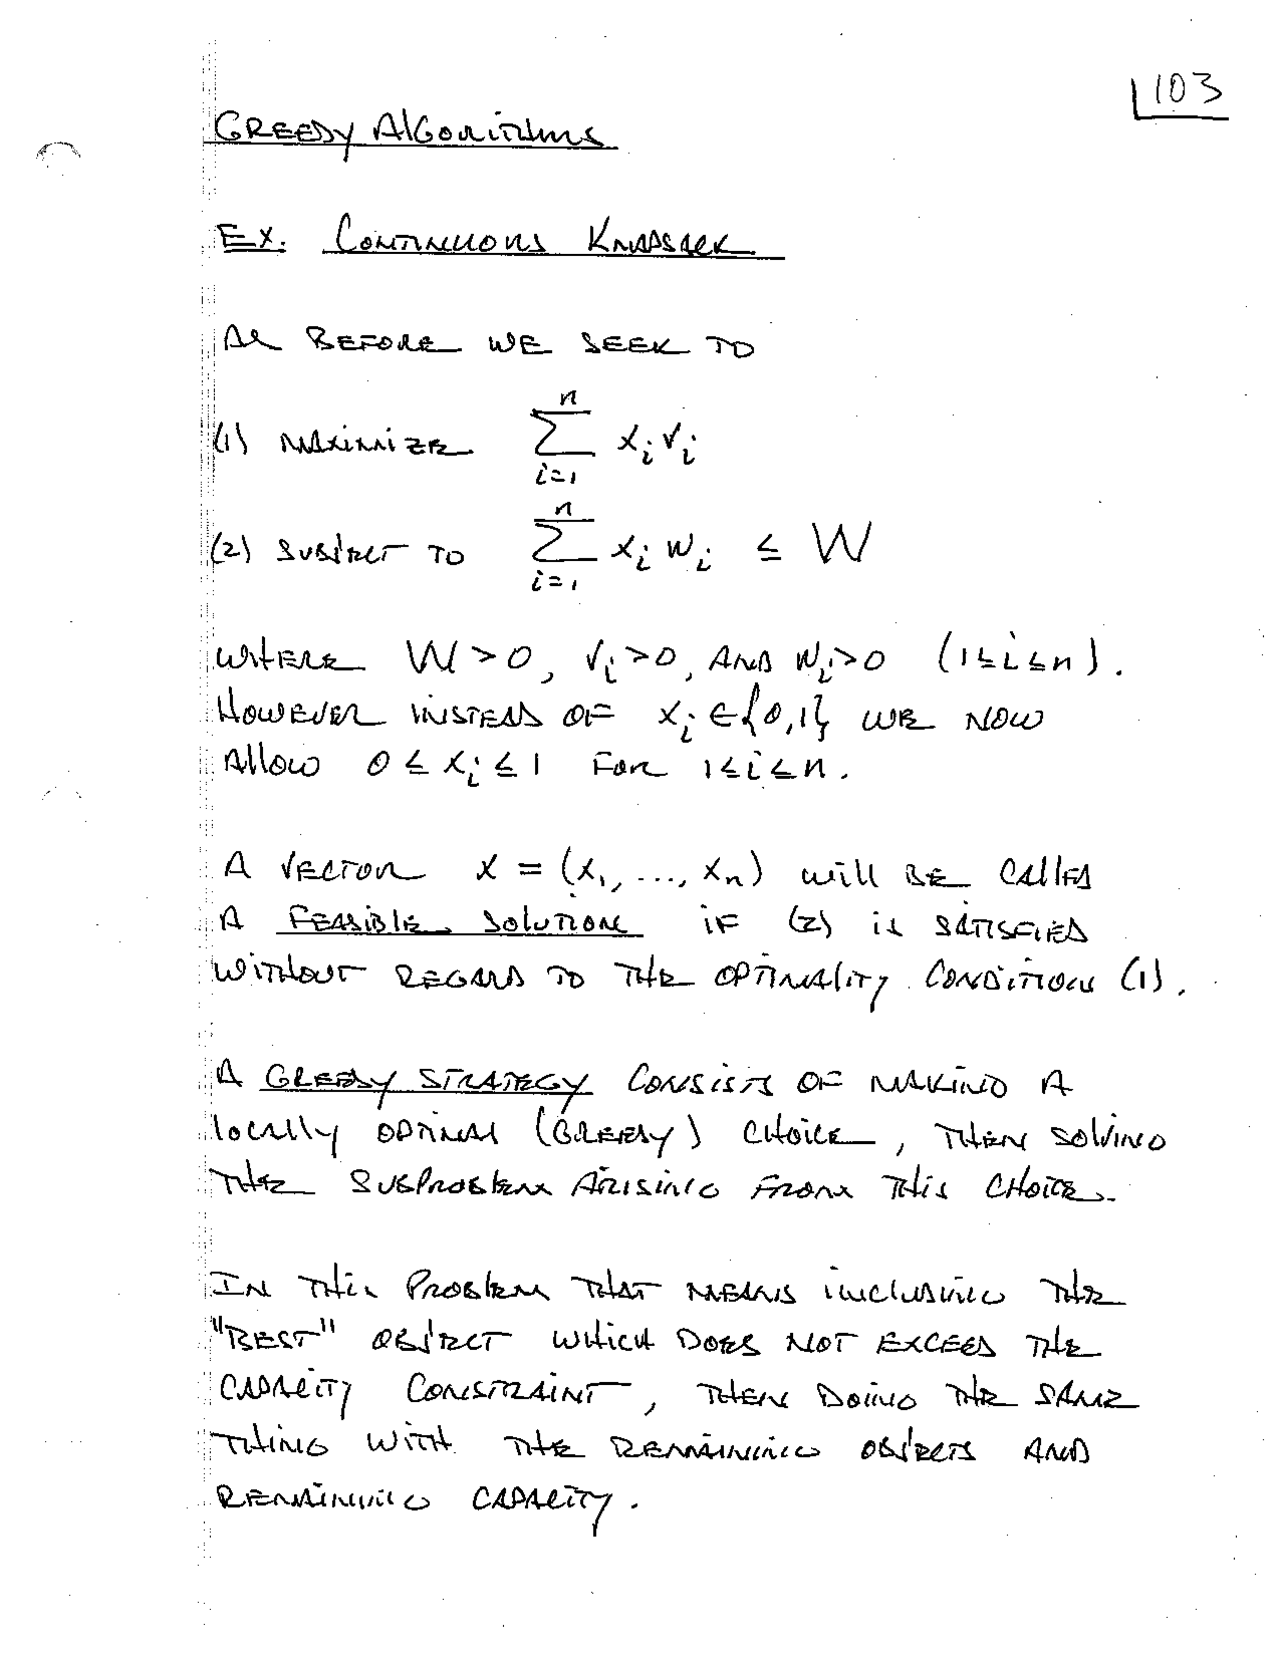 103
Greedy Algorithms
Ex. Continuous Knapsack
As before we seek to
(1) maximize $\sum_{i=1}^{n} x_i v_i$
(2) subject to $\sum_{i=1}^{n} x_i w_i \le W$
where W > 0, v_i > 0, and w_i > 0 (1 ≤ i ≤ n).
However instead of x_i ∈ {0,1} we now
allow 0 ≤ x_i ≤ 1 for 1 ≤ i ≤ n.
A vector x = (x_1, ..., x_n) will be called
a feasible solution if (2) is satisfied
without regard to the optimality condition (1).
A greedy strategy consists of making a
locally optimal (greedy) choice, then solving
the subproblem arising from this choice.
In this problem that means including the
"best" object which does not exceed the
capacity constraint, then doing the same
thing with the remaining objects and
remaining capacity.